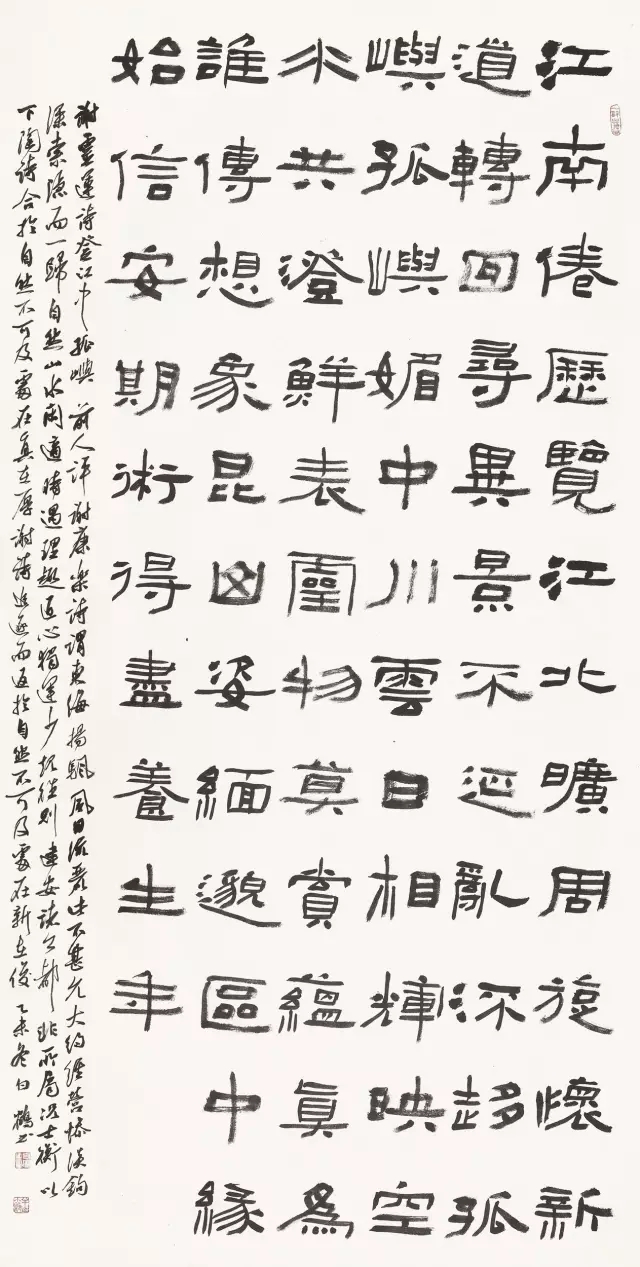 江南倦歷覽江北曠周旋懷新
道轉回尋異景不延亂流趍孤
嶼孤嶼媚中川雲日相輝映空
水共澄鮮表靈物莫賞蘊真爲
誰傳想象昆山姿緬邈區中緣
始信安期術得盡養生年
謝靈運詩登江中孤嶼 前人評謝康樂詩謂東海揚颿風日流麗此不甚允大約經營慘淡鉤
深索隱而一歸自然山水閑適時遇理趣匠心獨運少規往則建安諸公都非所屑況士衡以
下陶詩合於自然不可及處在真在厚謝詩追逐而返於自然不可及處在新在俊 乙未冬白鶴書